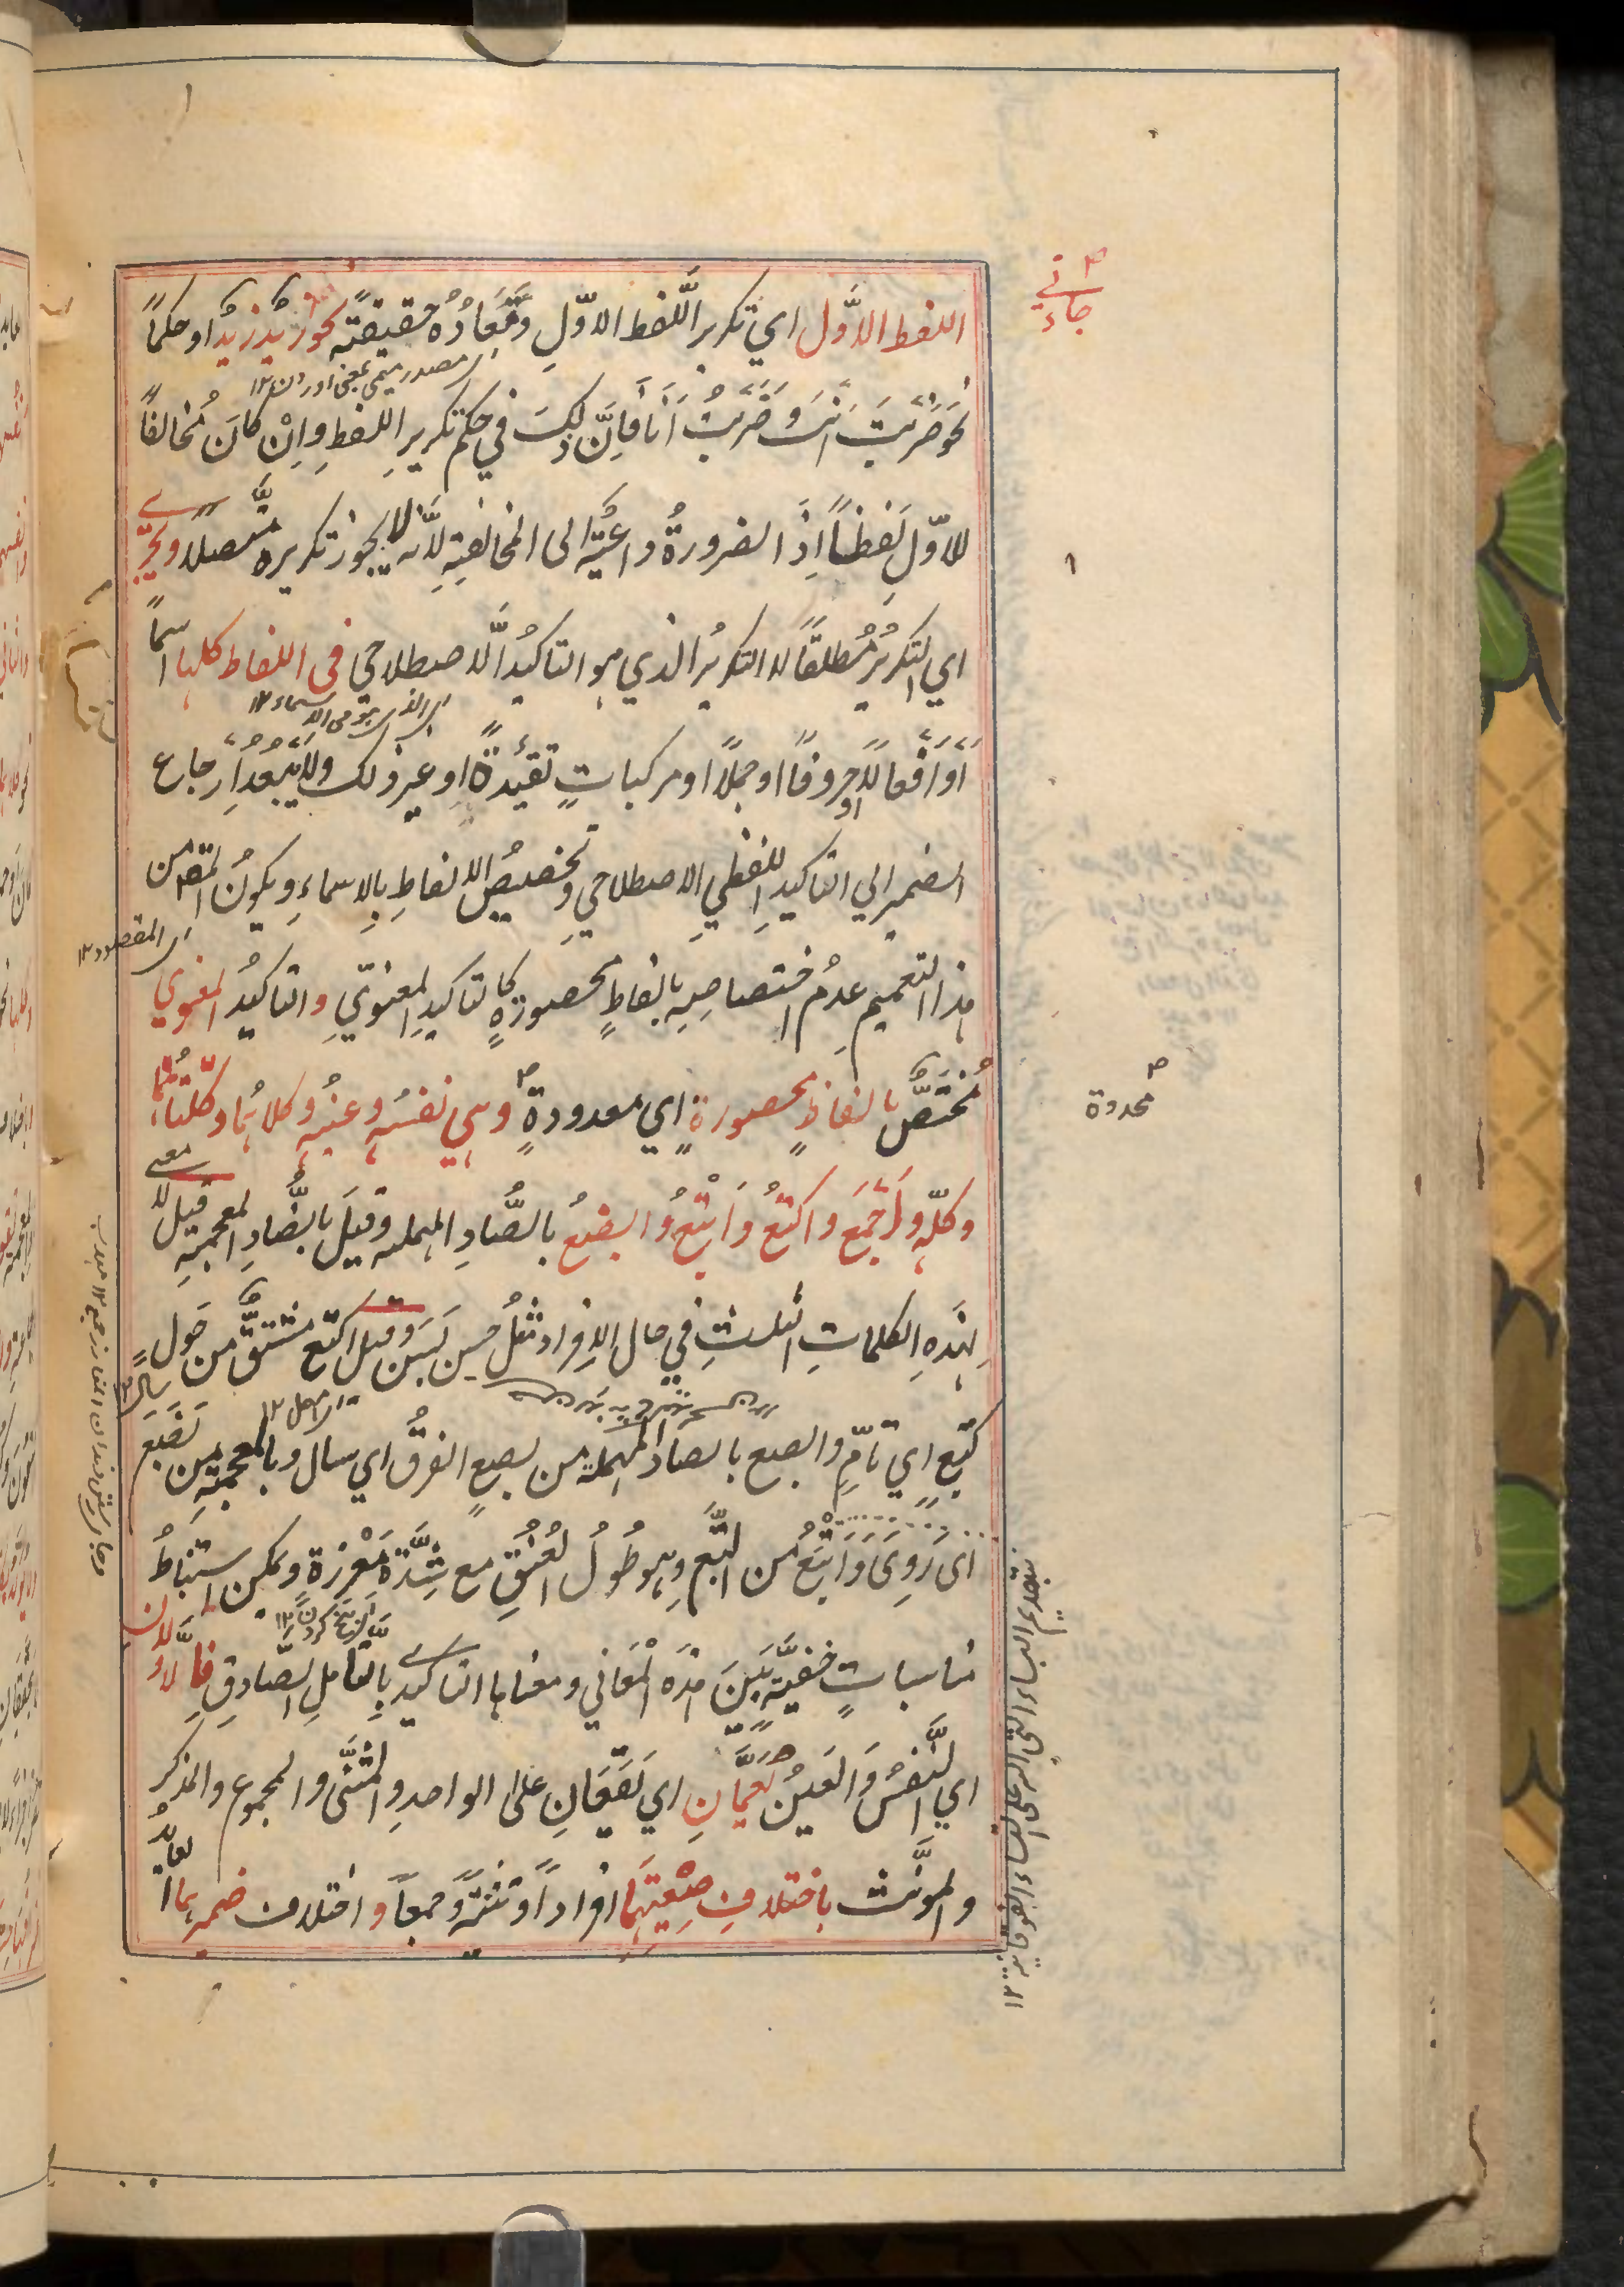 اللفظ الاَّول اي تكرير اللَّفظ الاوّلِ ومُعَادُهُ حقيقةً نحو زيدٌ زيدٌ او حكمًا
نحو ضَرَبتَ اَنتَ وَضَرَبْتُ اَنَا فَاِنَّ ذلِكَ في حكم تكريرِ اللفظِ وَاِنْ كانَ مُخالفًا
للاوّلِ لَفظًا اِذَ الضرورةُ داعيَةٌ الى المخالفةِ لِاَنَّه لا يجوز تكريره متّصلاً ويجري
اي التكريرُ مُطلقًا لا التكريرُ الذي هو التاكيدُ الاصطلاحي في اللفاظ كلها اسمًا
اَوْ اَفْعالًا اَوْ حروفًا او جملًا او مركباتٍ تقيّدةً او غير ذلك ولا يَبعُدُ اِرجاع
الضمير الي التاكيدِ اللفظيِ الاصطلاحيِ وتخصيصُ الالفاظِ بالاسماءِ ويكونُ المقصود من
هذا التعميم عدمُ اختصاصِهِ بالفاظٍ محصورةٍ كالتاكيدِ المعنويِّ والتاكيدُ المعنوي
مُختَصٌّ بالفاظٍ محصورةٍ اي معدودةٍ وهي نفسُه وعينُه وكلاهُما وكلتاهُما
وكلّه وَاَجْمَعُ وَاكتَعُ وَاَبْتَعُ وَابصَعُ بالصَّادِ المهملة وقيلَ بالضَّادِ المعجمةِ قيل لا معنى
لهذهِ الكلماتِ الثلثِ في حال الافراد مثلُ حسن بَسَن وقيل اكتع مشتقٌّ من حَول
كتيعٍ اي تامٍّ وابصع بالصاد المهملة من بصعٍ العرقُ اي سال وبالمعجمةِ من بَضَعَ
اى رَوِىَ وَاَبْتَعُ من البَتَعِ وهو طُولُ العُنُقِ مع شِدَّةِ مَغْرَزِه ويمكن استنباطُ
مناسباتٍ خفيّةٍ بَينَ هذه المَعَاني ومعناها التاكيدي بالتَّامّلِ الصَّادقِ فالاوَّلان
اي النَّفسُ وَالعَينُ يَعُمَّانِ اي يَقَعَانِ علَى الواحدِ والمثَنَّى والمجموع والمذكر
والمؤنَّث باختلافِ صيغتِهِمَا افرادًا وتثنيةً وجمعًا واختلاف ضميرهما
محدودة